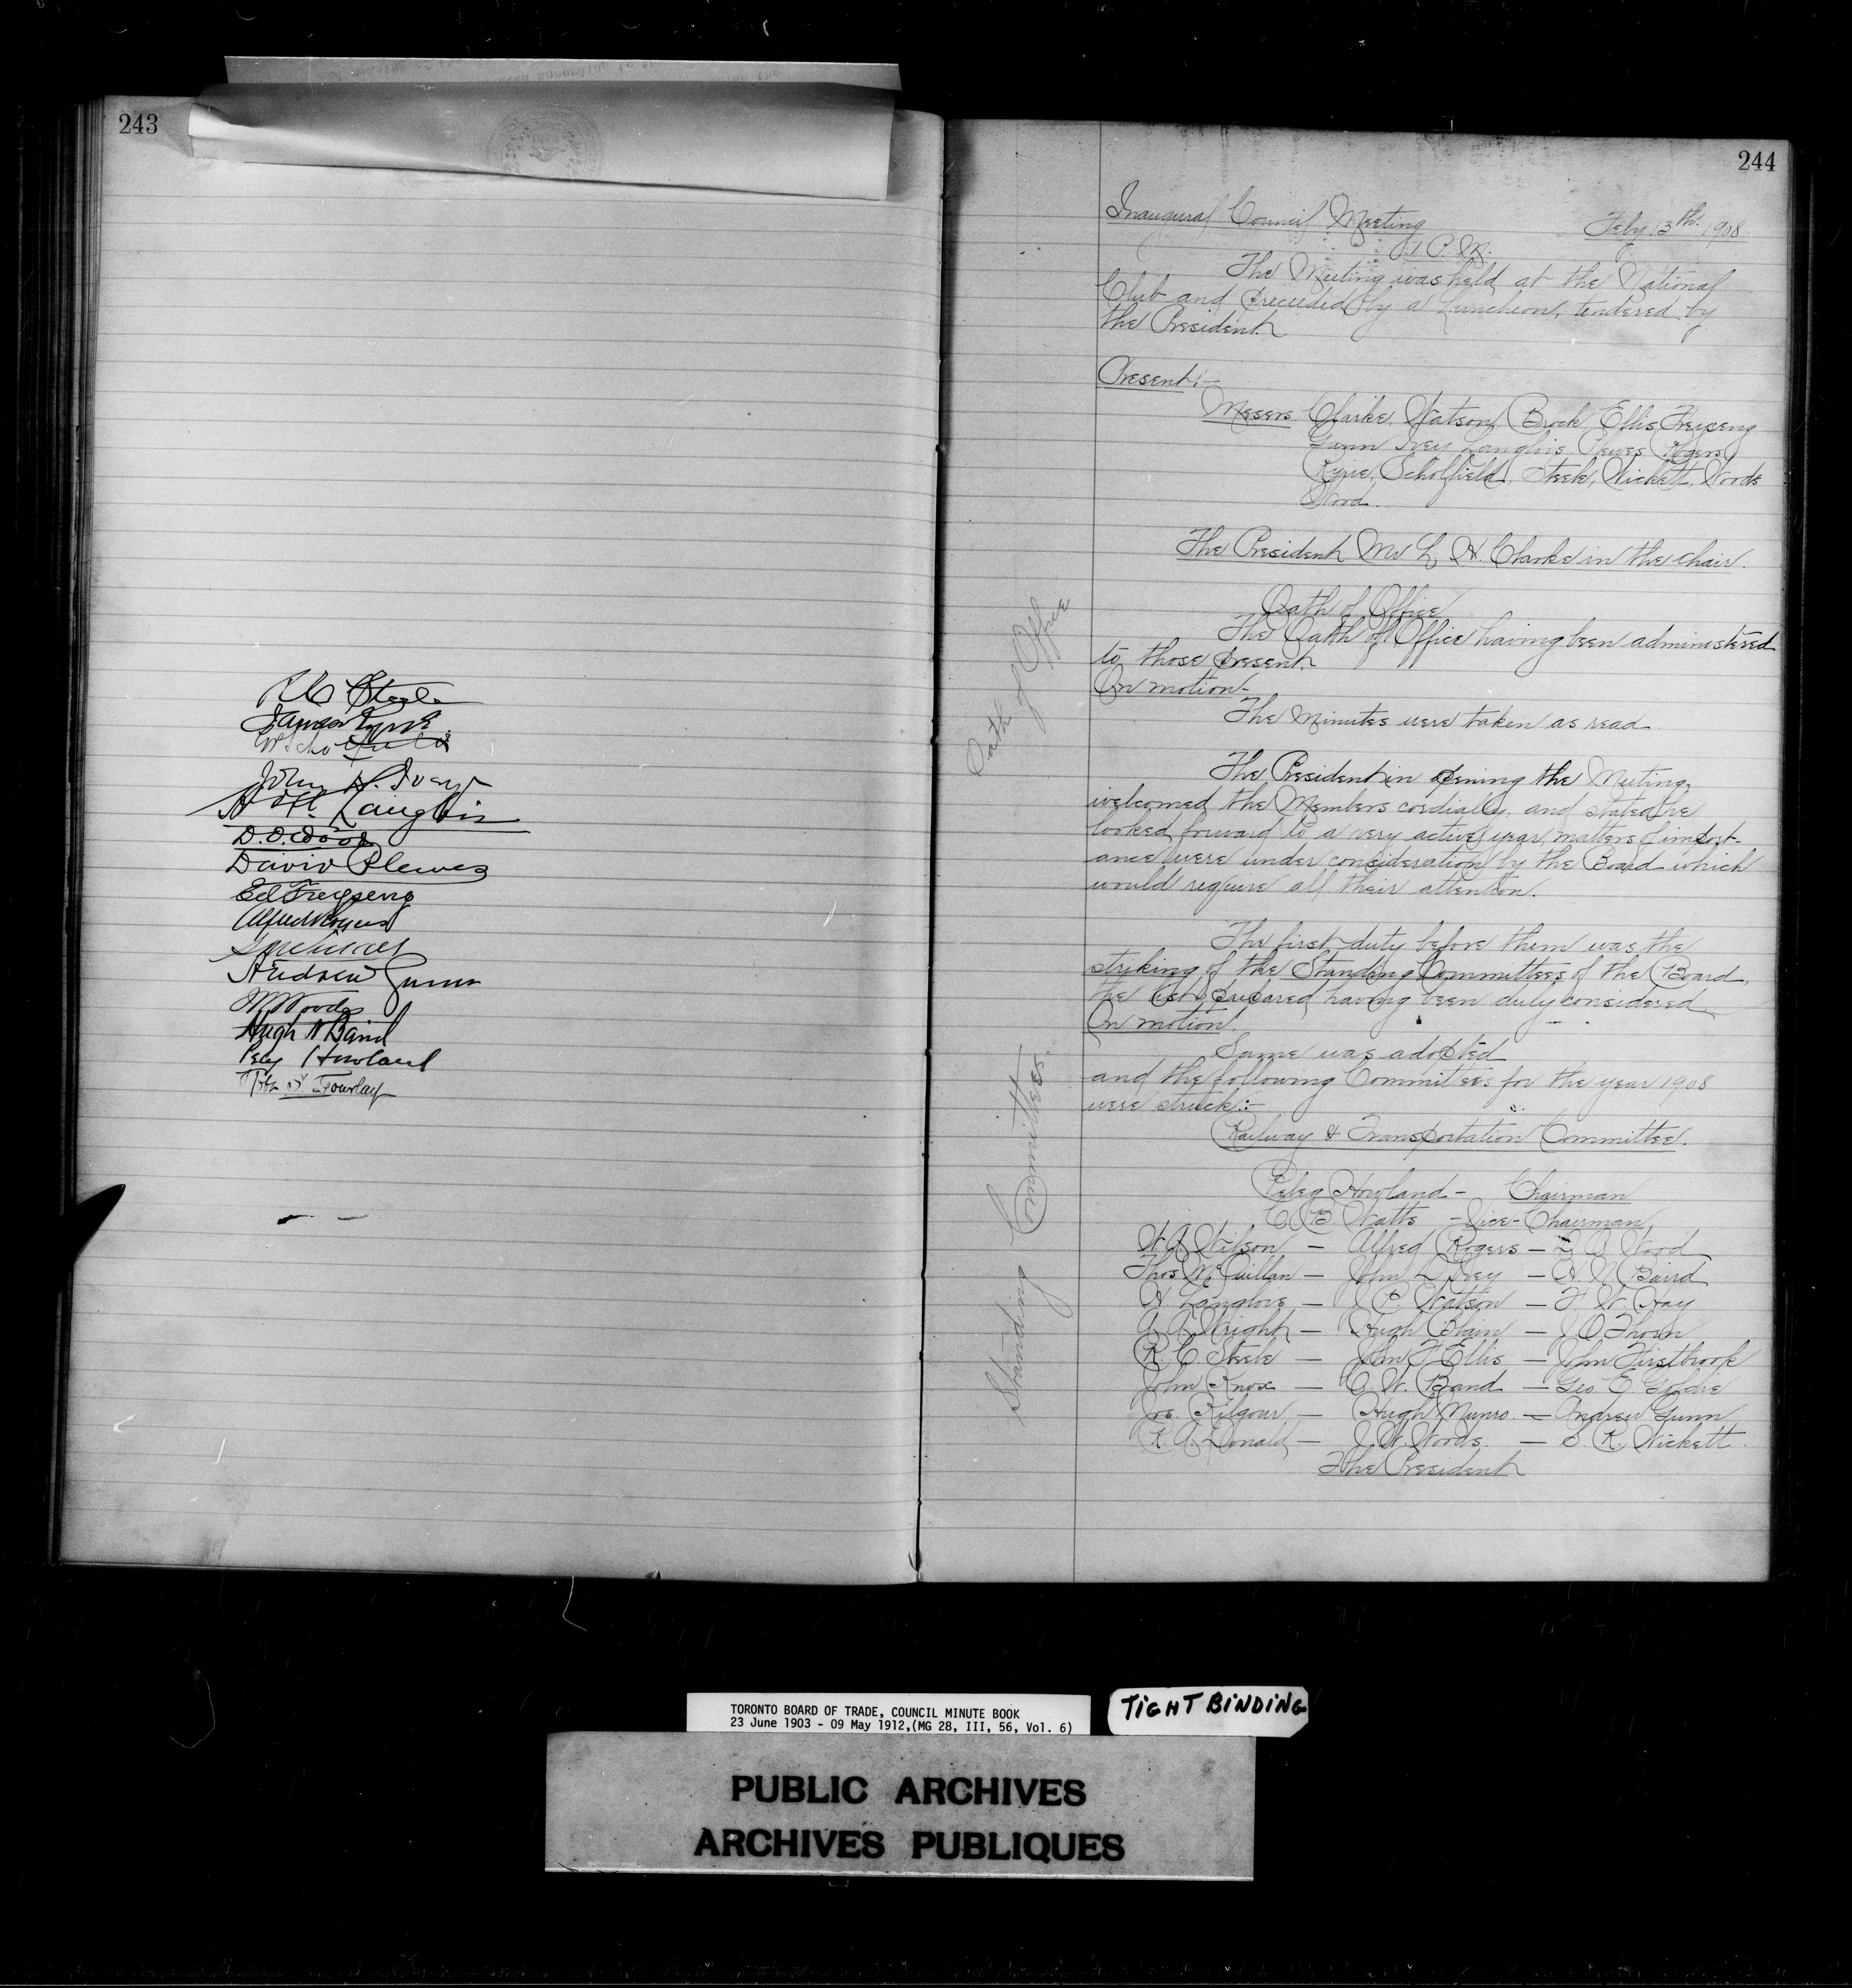 243
R C Steele
James Ryrie
John D. Ivey
H. Langlois
D. O. Wood
David Plewes
Ed Freyseng
Alfred Rogers
Andrew Gunn
W Woods
Hugh N Baird
Peleg Howland
244
Inaugural Council Meeting Feby 13th 1908
1 P.M.
The Meeting was held at the National
Club and preceeded by a Luncheon, tendered by
the President.
Present:-
Messrs. Clarke, Watson, Brock, Ellis, Freyseng
Gunn Ivey Langlois Plewes Rogers
Ryrie, Scholfield, Steele, Wickett, Woods
Wood.
The President Mr L. H. Clarke in the chair.
Oath of Office
Oath of Office
The Oath of Office having been administered
to those present.
On motion-
The Minutes were taken as read.
The President in opening the Meeting,
welcomed the Members cordially, and stated he
looked forward to a very active year, matters of import-
ance were under consideration by the Board which
would require all their attention.
Standing Committees.
The first duty before them was the
striking of the Standing Committees of the Board,
the list prepared having been duly considered
On motion.
Same was adopted
and the following Committees for the year 1908
were struck:-
Railway & Transportation Committee.
Peleg Howland - Chairman
C. B. Watts - Vice-Chairman
W. A. Wilson - Alfred Rogers - D. O. Wood
Thos McQuillan - John D Ivey - H. N. Baird
H. Langlois - J. P. Watson - F. W. Hay
A. A. Wright - Hugh Blain - J. O. Thorn
R. C. Steele - John F Ellis - John Firstbrook
John Knox - C. W. Band - Geo. E. Goldie
Jos. Kilgour - Hugh Munro - Andrew Gunn
R. A. Donald - J. W. Woods. - S. R. Wickett.
The President
TORONTO BOARD OF TRADE, COUNCIL MINUTE BOOK
23 June 1903 - 09 May 1912,(MG 28, III, 56, Vol. 6)
TIGHT BINDING
PUBLIC ARCHIVES
ARCHIVES PUBLIQUES